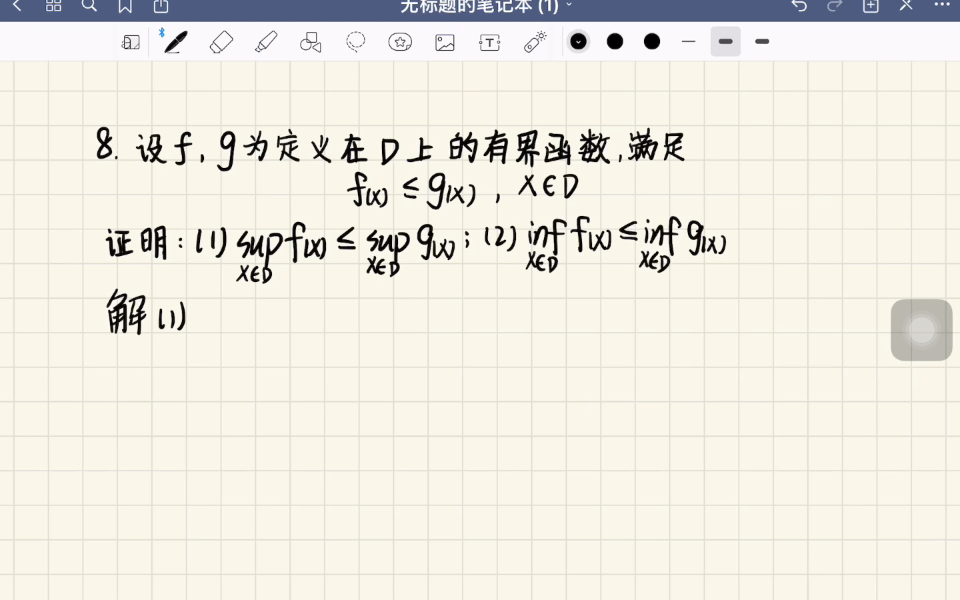 无标题的笔记本 (1)
8. 设 f, g 为定义在 D 上的有界函数,满足
f(x) ≤ g(x), x∈D
证明: (1) sup f(x) ≤ sup g(x); (2) inf f(x) ≤ inf g(x)
x∈D x∈D x∈D x∈D
解 (1)